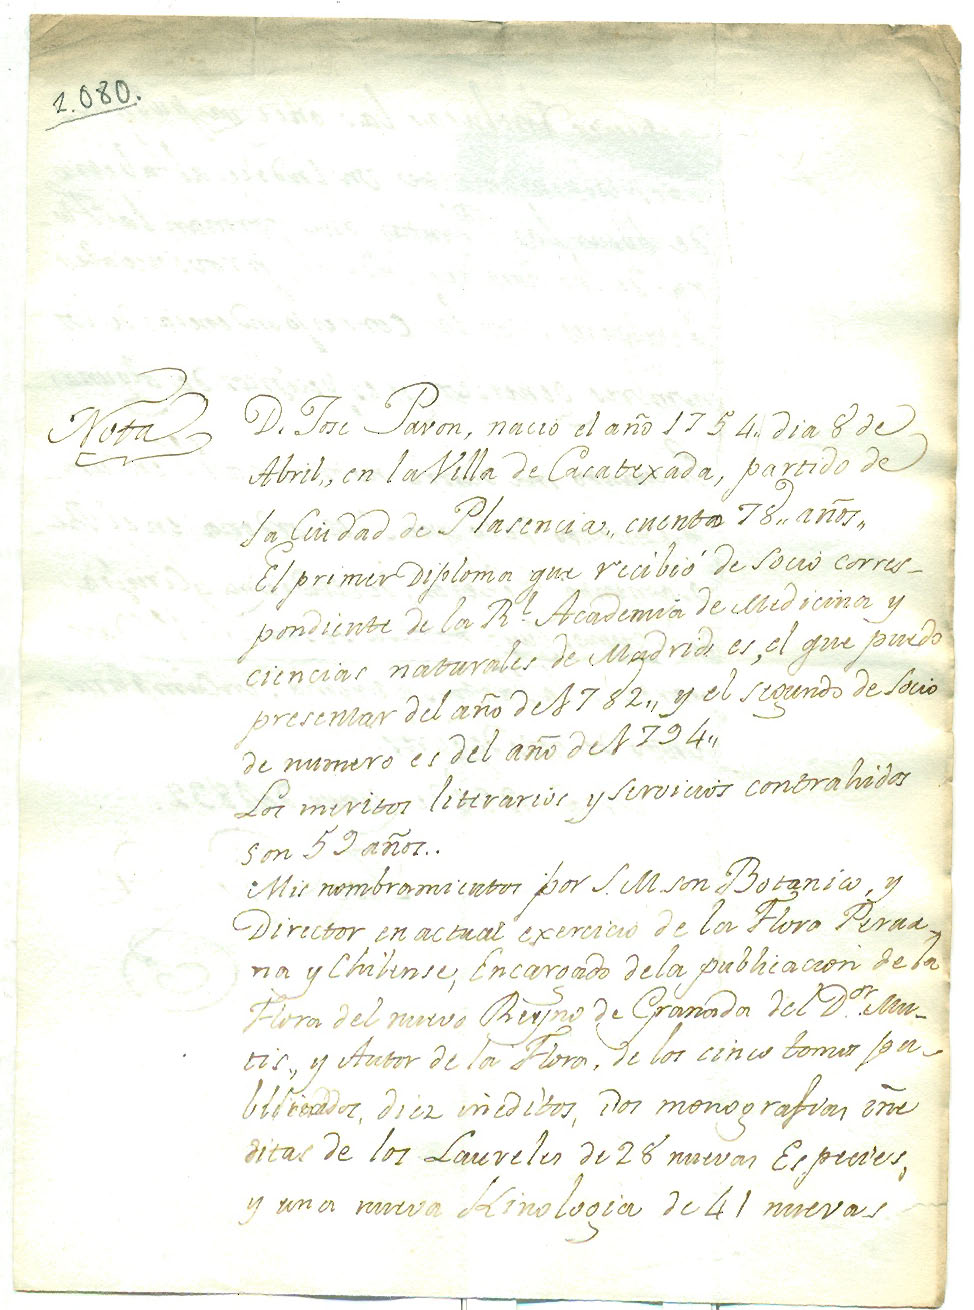 1.080.
Nota
D. Jose Pavon, nacio el año 1754.. dia 8 de
Abril,, en la Villa de Casatexada, partido de
la Ciudad de Plasencia,, cuenta 78,, años,,
El primer Diploma que recibió de Socio corres-
pondiente de la Rl. Academia de Medicina y
ciencias naturales de Madrid es, el que puedo
presentar del año de 1782,, y el segundo de Socio
de numero es del año de 1794,,
Los meritos literarios y servicios contrahidos
son 59 años..
Mis nombramientos por S. M. son Botanico, y
Director en actual exercicio de la Flora Perua-
na y Chilense, Encargado de la publicacion de la
Flora del nuevo Reyno de Granada del Dor. Mu-
tis., y Autor de la Flora, de los cinco tomos pu-
blicados, diez ineditos, dos monografias iñe
ditas de los Laureles de 28 nuevas Especies,
y una nueva Kinologia de 41 nuevas